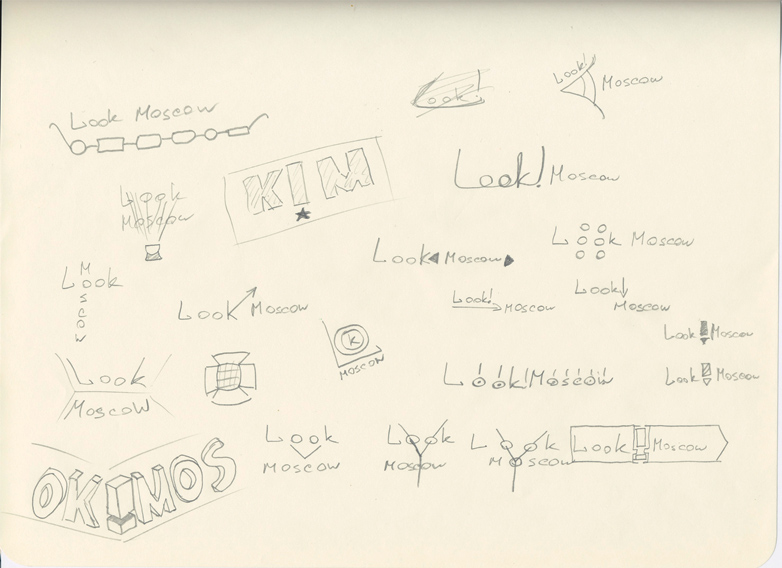 Look!
Look!
Moscow
Look Moscow
KIM
Look! Moscow
Look
Moscow
Look Moscow
Look Moscow
Look
Moscow
Look Moscow
Look!
Moscow
Look
Moscow
Look Moscow
K
Moscow
Look Moscow
Look
Moscow
Look! Moscow
OK!MOS
Look
Moscow
Look
Moscow
Look
Moscow
Look Moscow